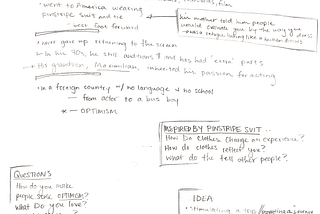 film
• went to America wearing
pinstripe suit and tie
→ kept foreward
his mother told him people
would evaluate you by the way you dress
• never gave up returning to the screen
• In his 70s, he still auditions & and has had "extra" parts
→ His grandson, Maximilian, inherited his passion for acting
• in a foreign country w/ no language & no school
→ from actor to a bus boy
* → OPTIMISM
INSPIRED BY PINSTRIPE SUIT...
How do clothes change an experience?
How do clothes reflect you?
What do the tell other people?
QUESTIONS
How do you make
people sense OPTIMISM?
What Do you love?
IDEA